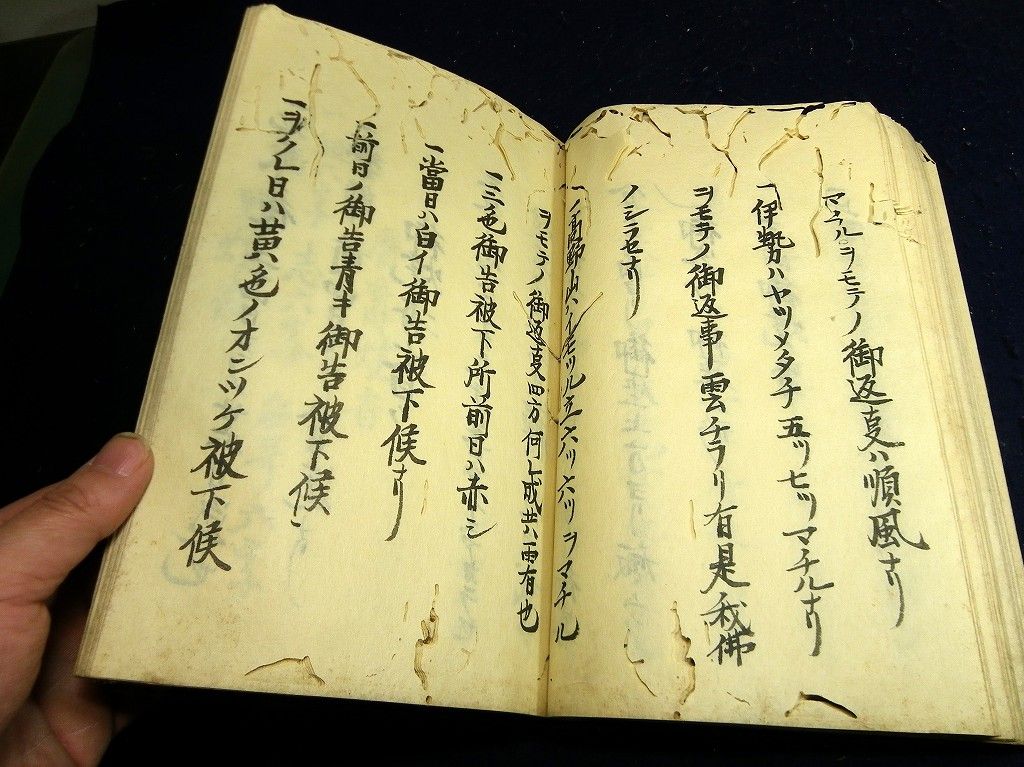 マチルヲモテノ御返支ハ順風ナリ
一伊勢カハヤツメタチ五ツ七ツマチルナリ
ヲモテノ御返事雲チラリ有是我佛
ノシラセナリ
一ノ高野山ハ モツル五六ツ六ツヲマチル
ヲモテノ御返支四方何レ成共ハ雨有也
一三色御告被下所前日ハ赤シ
一當日ハ白イ御告被下候ナリ
一前日ノ御告青キ御告被下候
一ヲノレ日ハ黄色ノオンツケ被下候